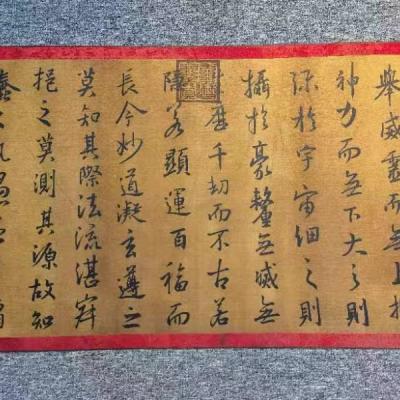 舉威靈而無上抑
神力而無下大之則
弥於宇宙細之則
攝於豪釐無滅無
歷千劫而不古若
隱若顯運百福而
長今妙道凝玄遵之
莫知其際法流湛寂
挹之莫測其源故知
蠢凡愚